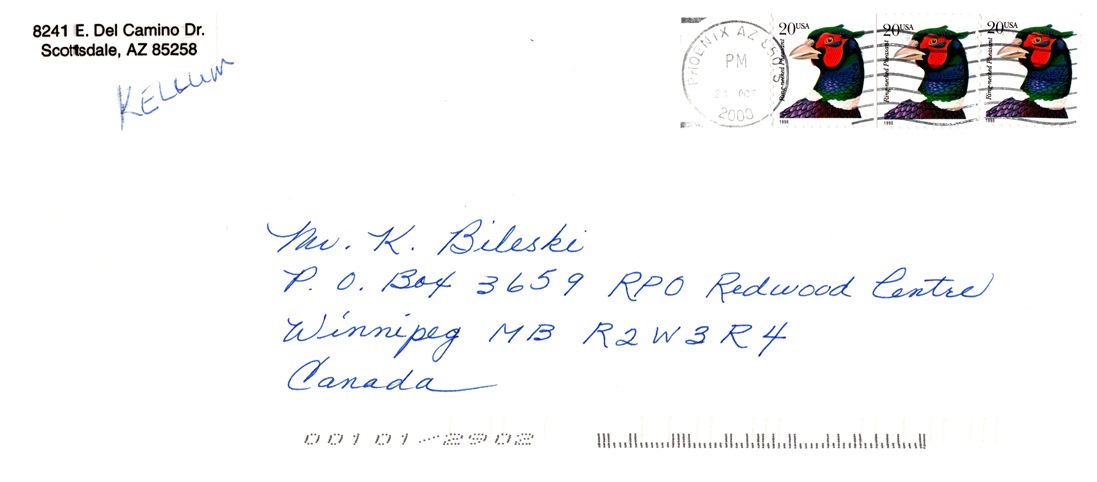 8241 E. Del Camino Dr.
Scottsdale, AZ 85258
KELLUM
PHOENIX AZ
PM
2000
20 USA
Ring-necked Pheasant
1998
20 USA
Ring-necked Pheasant
1998
20 USA
Ring-necked Pheasant
1998
Mr. K. Bileski
P. O. Box 3659 RPO Redwood Centre
Winnipeg MB R2W3R4
Canada
00101/2902